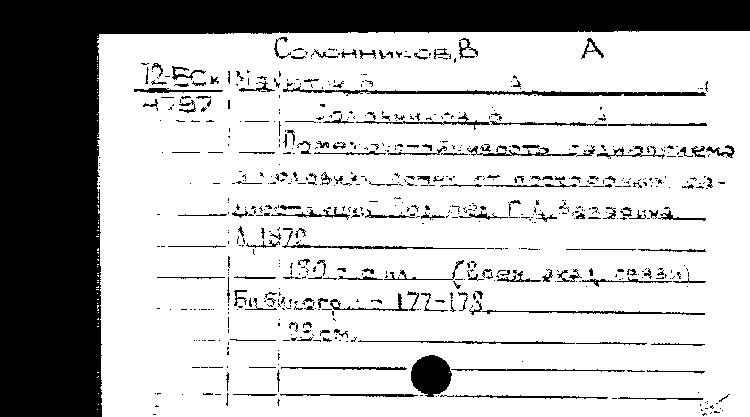 Солонников, В А
12-5Ск
4797
Солонников, В А
Помехоустойчивость радиоприема
в условиях помех от посторонних ра-
диостанций Под ред. Г. Д.
Л, 1972
180 с ил. (Воен. акад. связи)
Библиогр.: с 177-178.
22 см.